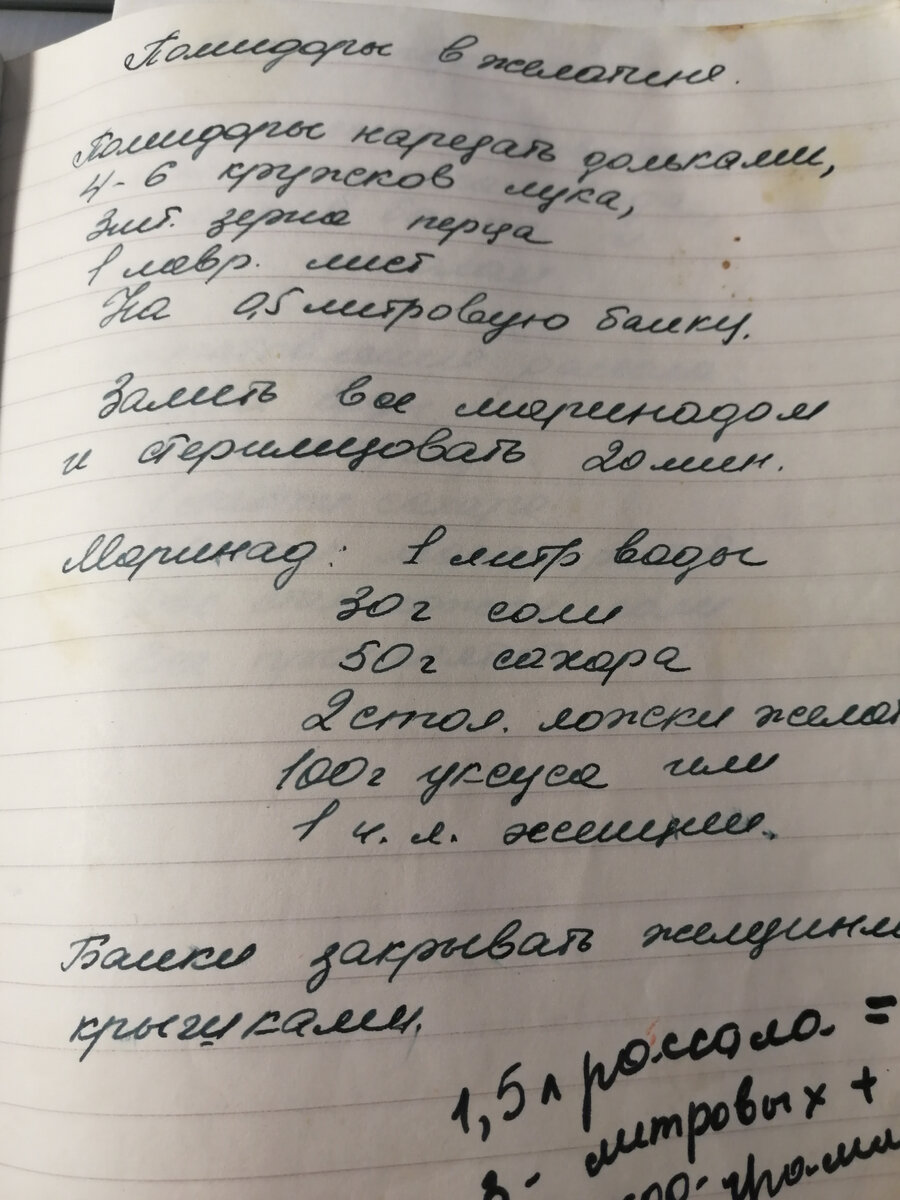 Помидоры в желатине.
Помидоры нарезать дольками,
4-6 кружков лука,
3шт. зерна перца
1 лавр. лист
На 0,5 литровую банку.
Залить все маринадом
и стерилизовать 20 мин.
Маринад: 1 литр воды
30 г соли
50 г сахара
2 стол. ложки желат
100 г уксуса или
1 ч. л. эссенции.
Банки закрывать
крышками.
1,5 л рассола =
литровых +